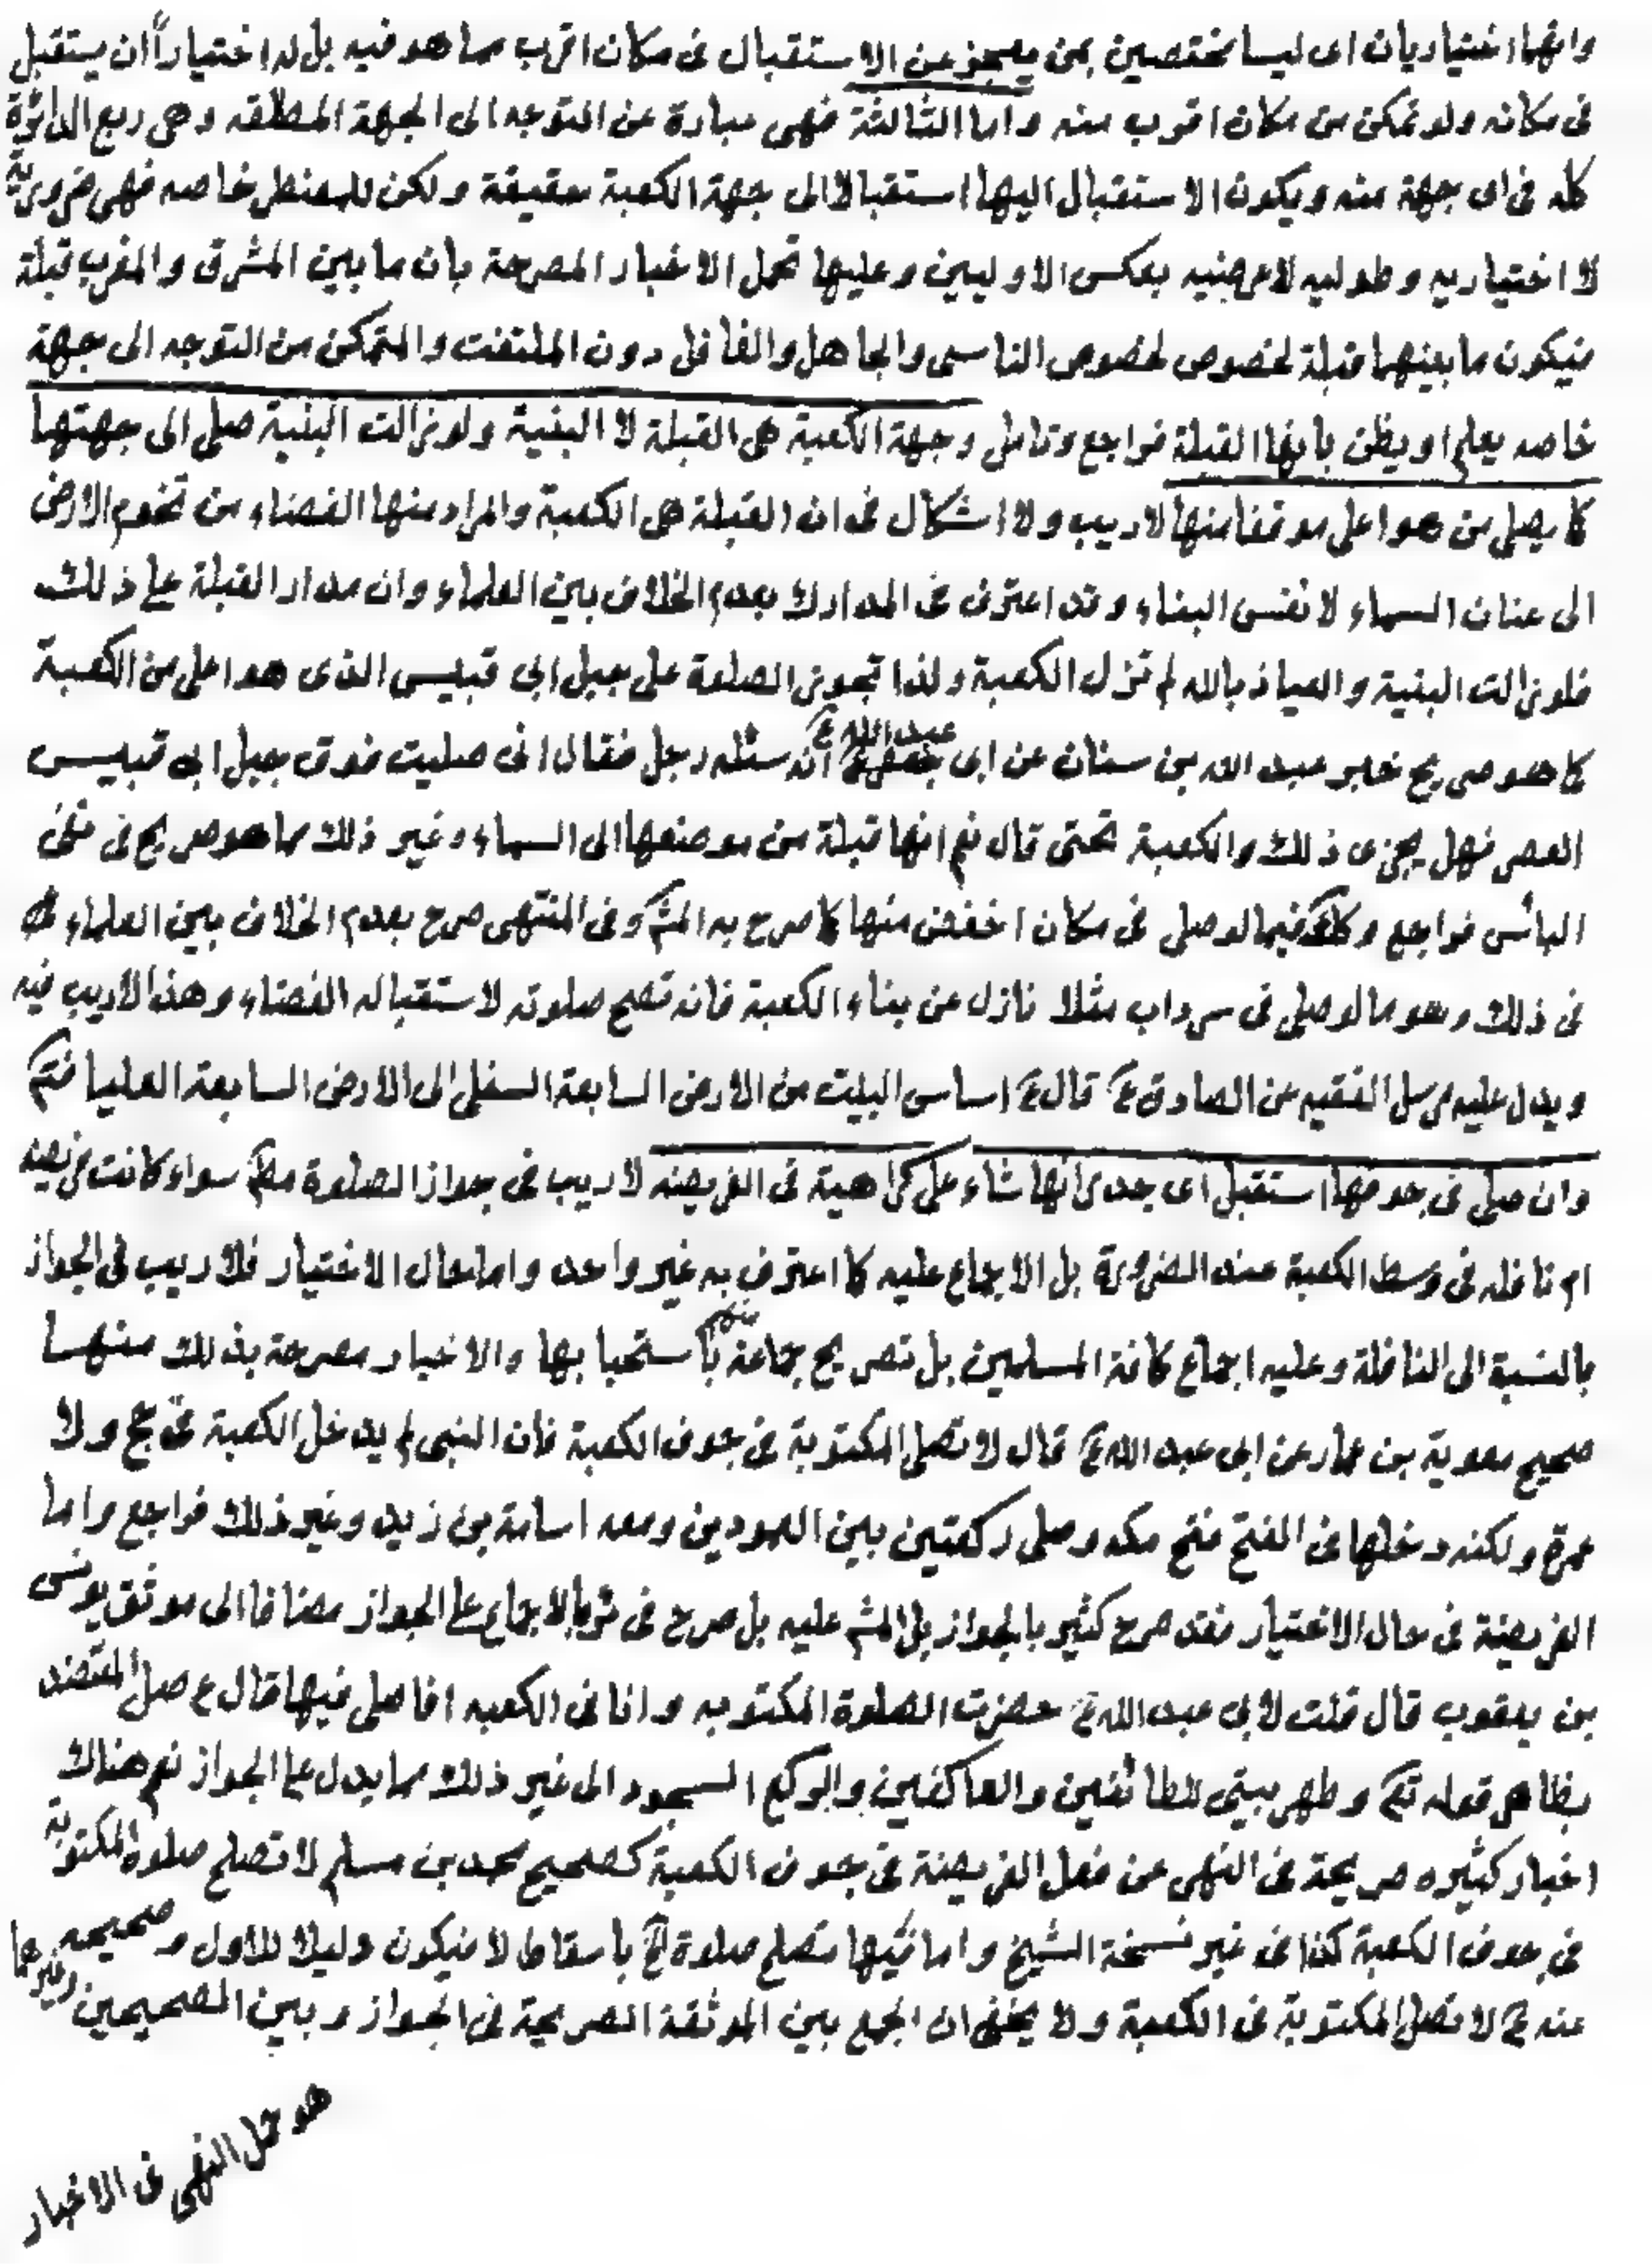 وانهما اختياريان اى ليسا مختصين بمن يعجز عن الاستقبال فى مكان اقرب مما هو فيه بل له اختياراً ان يستقبل
فى مكانه ولو تمكن من مكان اقرب منه واما الثالثة فهى عبارة عن التوجه الى الجهة المطلقه وهى ربع الدائرة
كله فى اى جهة منه ويكون الاستقبال اليها استقبالا الى جهة الكعبة حقيقة ولكن للمضطر خاصه فهى ضرورية
لا اختياريه وطوليه لا عرضيه بعكس الاوليين وعليها تحمل الاخبار المصرحة بان ما بين المشرق والمغرب قبلة
فيكون ما بينهما قبلة لخصوص لخصوص الناسى والجاهل والغافل دون الملتفت والمتمكن من التوجه الى جهة
خاصه يعلم او يظن بأنها القبلة فراجع وتامل وجهة الكعبة هى القبلة لا البنية ولو زالت البنية صلى الى جهتها
كما يصلى من هو اعلى موقفا منها لا ريب ولا اشكال فى ان القبلة هى الكعبة والمراد منها الفضاء من تخوم الارض
الى عنان السماء لا نفس البناء وقد اعترف فى المدارك بعدم الخلاف بين العلماء وان مدار القبلة على ذلك
فلو زالت البنية والعياذ بالله لم تزل الكعبة ولذا تجوز الصلوة على جبل ابى قبيس الذى هو اعلى من الكعبة
كما هو صريح خبر عبد الله بن سنان عن ابى عبد الله ع انه سئله رجل فقال انى صليت فوق جبل ابى قبيس
العصر فهل يجزى ذلك والكعبة تحتى قال نعم انها قبلة من موضعها الى السماء وغير ذلك مما هو صريح فى نفى
البائس فراجع وكك فيما لو صلى فى مكان اخفض منها كما صرح به المش وفى المنتهى صرح بعدم الخلاف بين العلماء
فى ذلك وهو ما لو صلى فى سرداب مثلا نازل عن بناء الكعبة فانه تصح صلوته لاستقباله الفضاء وهذا لا ريب فيه
ويدل عليه مرسل الفقيه عن الصادق ع قال ع اساس البيت من الارض السابعة السفلى الى الارض السابعة العليا
وان صلى فى جوفها استقبل اى جدرانها شاء على كراهية فى الفريضه لا ريب فى جواز الصلوة مطم سواء كانت فريضه
ام نافله فى وسط الكعبة عند الضرورة بل الاجماع عليه كما اعترف به غير واحد واما حال الاختيار فلا ريب فى الجواز
بالنسبة الى النافلة وعليه اجماع كافة المسلمين بل تصريح جماعة منهم باستحبابها والاخبار مصرحة بذلك منها
صحيح معوية بن عمار عن ابى عبد الله ع قال لا تصل المكتوبة فى جوف الكعبة فان النبى لم يدخل الكعبة فى حج ولا
عمرة ولكنه دخلها فى الفتح فتح مكه وصلى ركعتين بين العمودين ومعه اسامة بن زيد وغير ذلك فراجع واما
الفريضة فى حال الاختيار فقد صرح كثير بالجواز بل المش عليه بل صرح فى بالاجماع على الجواز مضافا الى موثق يونس
بن يعقوب قال قلت لابى عبد الله ع حضرت الصلوة المكتوبه وانا فى الكعبه افاصلى فيها قال ع صل المعتضد
بظاهر قوله تع وطهر بيتى للطائفين والعاكفين والركع السجود الى غير ذلك مما يدل على الجواز نعم هناك
اخبار كثيره صريحة فى النهى عن فعل الفريضة فى جوف الكعبة كصحيح محمد بن مسلم لا تصلح صلوة المكتوبة
فى جوف الكعبة كذا فى غير نسخة الشيخ واما فيها تصلح صلوة الخ باسقاط لا فيكون دليلا للاول وصحيحه
عنه ع لا تصل المكتوبة فى الكعبة ولا يخفى ان الجمع بين الموثقة الصريحة فى الجواز وبين الصحيحين وغيرهما
هو حمل النهى فى الاخبار